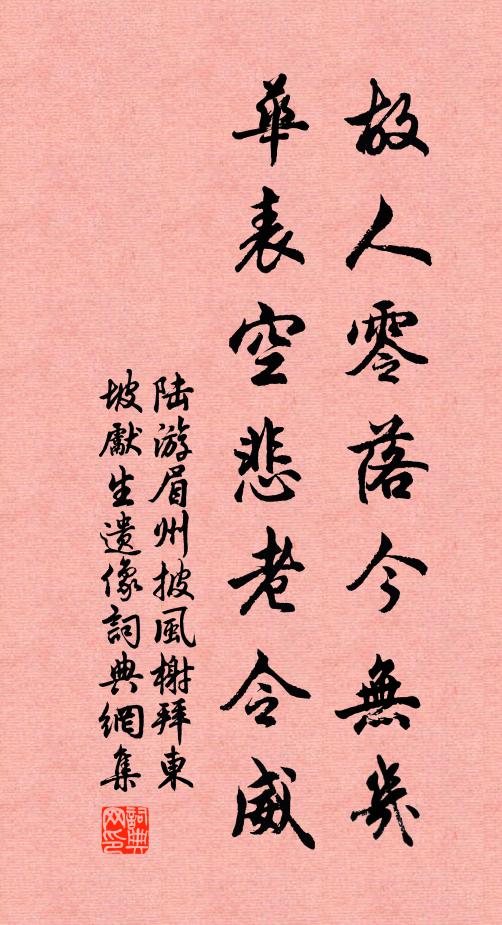 故人零落今無幾
華表空悲老令威
陆游眉州披風榭拜東
坡獻生遺像詞典網集
詞典网印